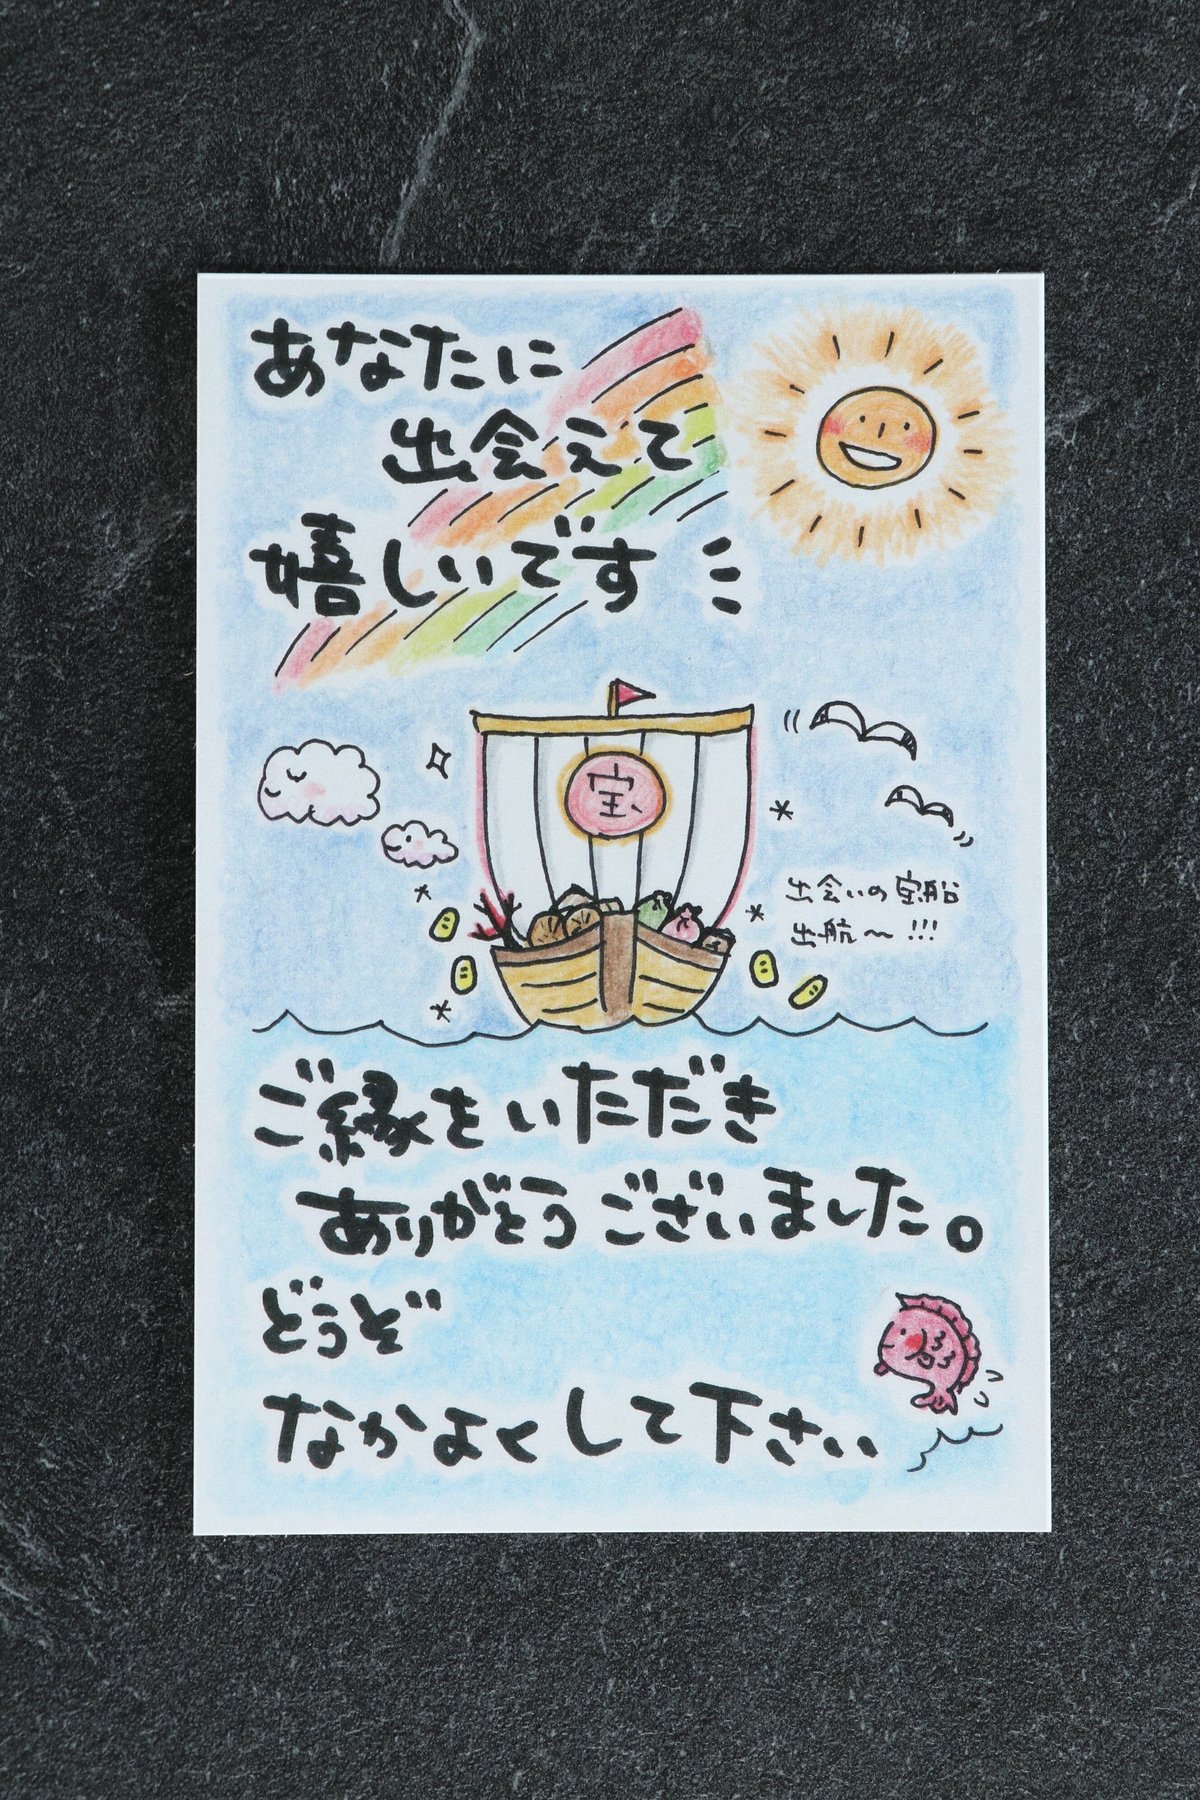 あなたに
出会えて
嬉しいです
宝
出会いの宝船
出航〜!!!
ご縁をいただき
ありがとうございました。
どうぞ
なかよくして下さい